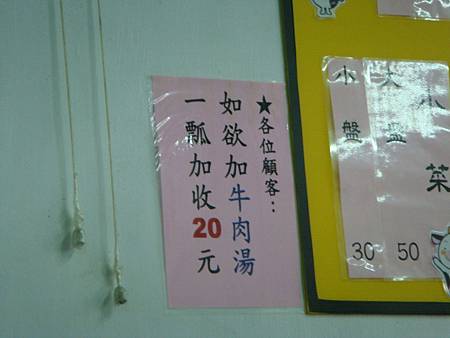 ★各位顧客：
如欲加牛肉湯
一瓢加收20元
小菜
大盤 50
小盤 30